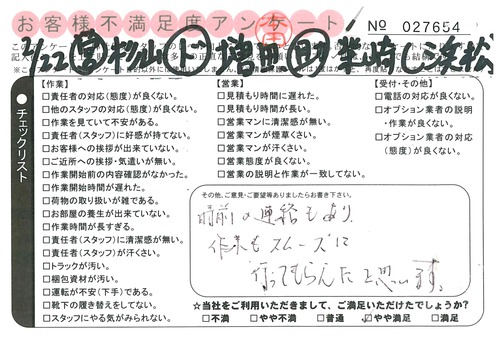 お客様不満足度アンケート
No 027654
チェックリスト
【作業】
□責任者の対応(態度)が良くない。
□他のスタッフの対応(態度)が良くない。
□作業を見ていて不安がある。
□責任者(スタッフ)に好感が持てない。
□お客様への挨拶が出来ていない。
□ご近所への挨拶・気遣いが無い。
□作業開始前の内容確認がなかった。
□作業開始時間が遅れた。
□荷物の取り扱いが雑である。
□お部屋の養生が出来ていない。
□作業時間が長すぎる。
□責任者(スタッフ)に清潔感が無い。
□責任者(スタッフ)が汗くさい。
□トラックが汚い。
□梱包資材が汚い。
□運転が不安(下手)である。
□靴下の履き替えをしてない。
□スタッフにやる気がみられない。
【営業】
□見積もり時間に遅れた。
□見積もり時間が長い。
□営業マンに清潔感が無い。
□営業マンが煙草くさい。
□営業マンが汗くさい。
□営業態度が良くない。
□営業の説明と作業が一致してない。
【受付・その他】
□電話の対応が良くない。
□オプション業者の説明
・作業が良くない。
□オプション業者の対応
(態度)が良くない。
その他、ご意見・ご要望等ありましたらお書き下さい。
時前の連絡もあり
作業もスムーズに
行ってもらえたと思います。
☆当社をご利用いただきまして、ご満足いただけたでしょうか?
□不満 □やや不満 □普通 ☑やや満足 □満足